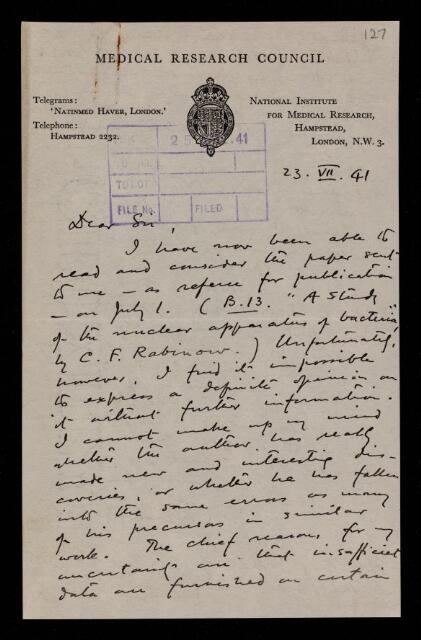 127
MEDICAL RESEARCH COUNCIL
Telegrams:
'NATINMED HAVER, LONDON.'
Telephone:
HAMPSTEAD 2232.
NATIONAL INSTITUTE
FOR MEDICAL RESEARCH,
HAMPSTEAD,
LONDON, N.W. 3.
25 41
FILE No. FILED
23. VII. 41
Dear Sir,
I have now been able to
read and consider the paper sent
to me — as referee for publication
— on July 1. (B.13. "A Study
of the nuclear apparatus of bacteria"
by C. F. Robinow.) Unfortunately,
however, I find it impossible
to express a definite opinion on
it without further information.
I cannot make up my mind
whether the author has really
made new and interesting dis-
coveries, or whether he has fallen
into the same errors as many
of his precursors in similar
work. The chief reasons for my
uncertainty are that insufficient
data are furnished on certain